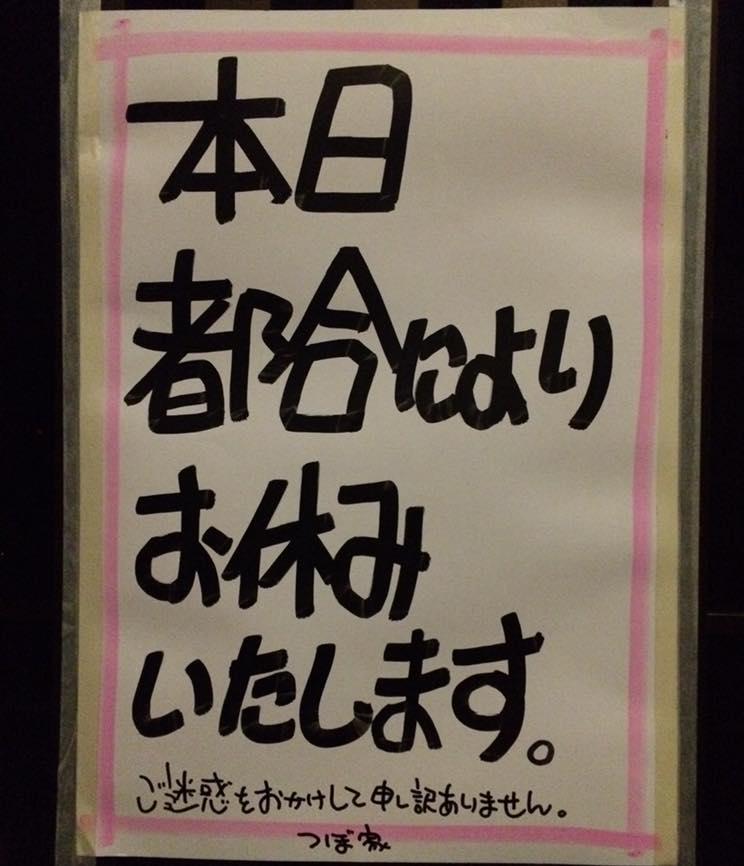 本日
都合により
お休み
いたします。
ご迷惑をおかけして申し訳ありません。
つぼ家